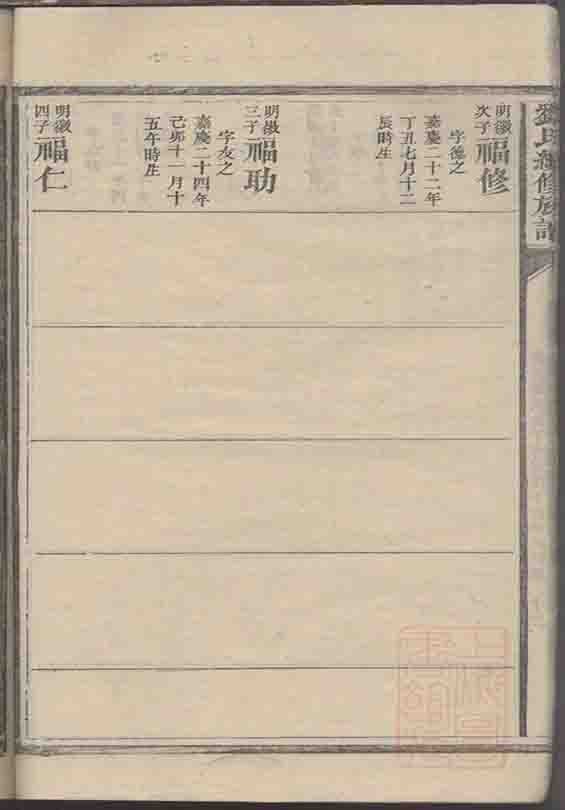 劉氏續修族譜
明徵
次子
福修
字德之
嘉慶二十二年
丁丑七月十二
辰時生
明徵
三子
福助
字友之
嘉慶二十四年
己卯十一月十
五午時生
明徵
四子
福仁